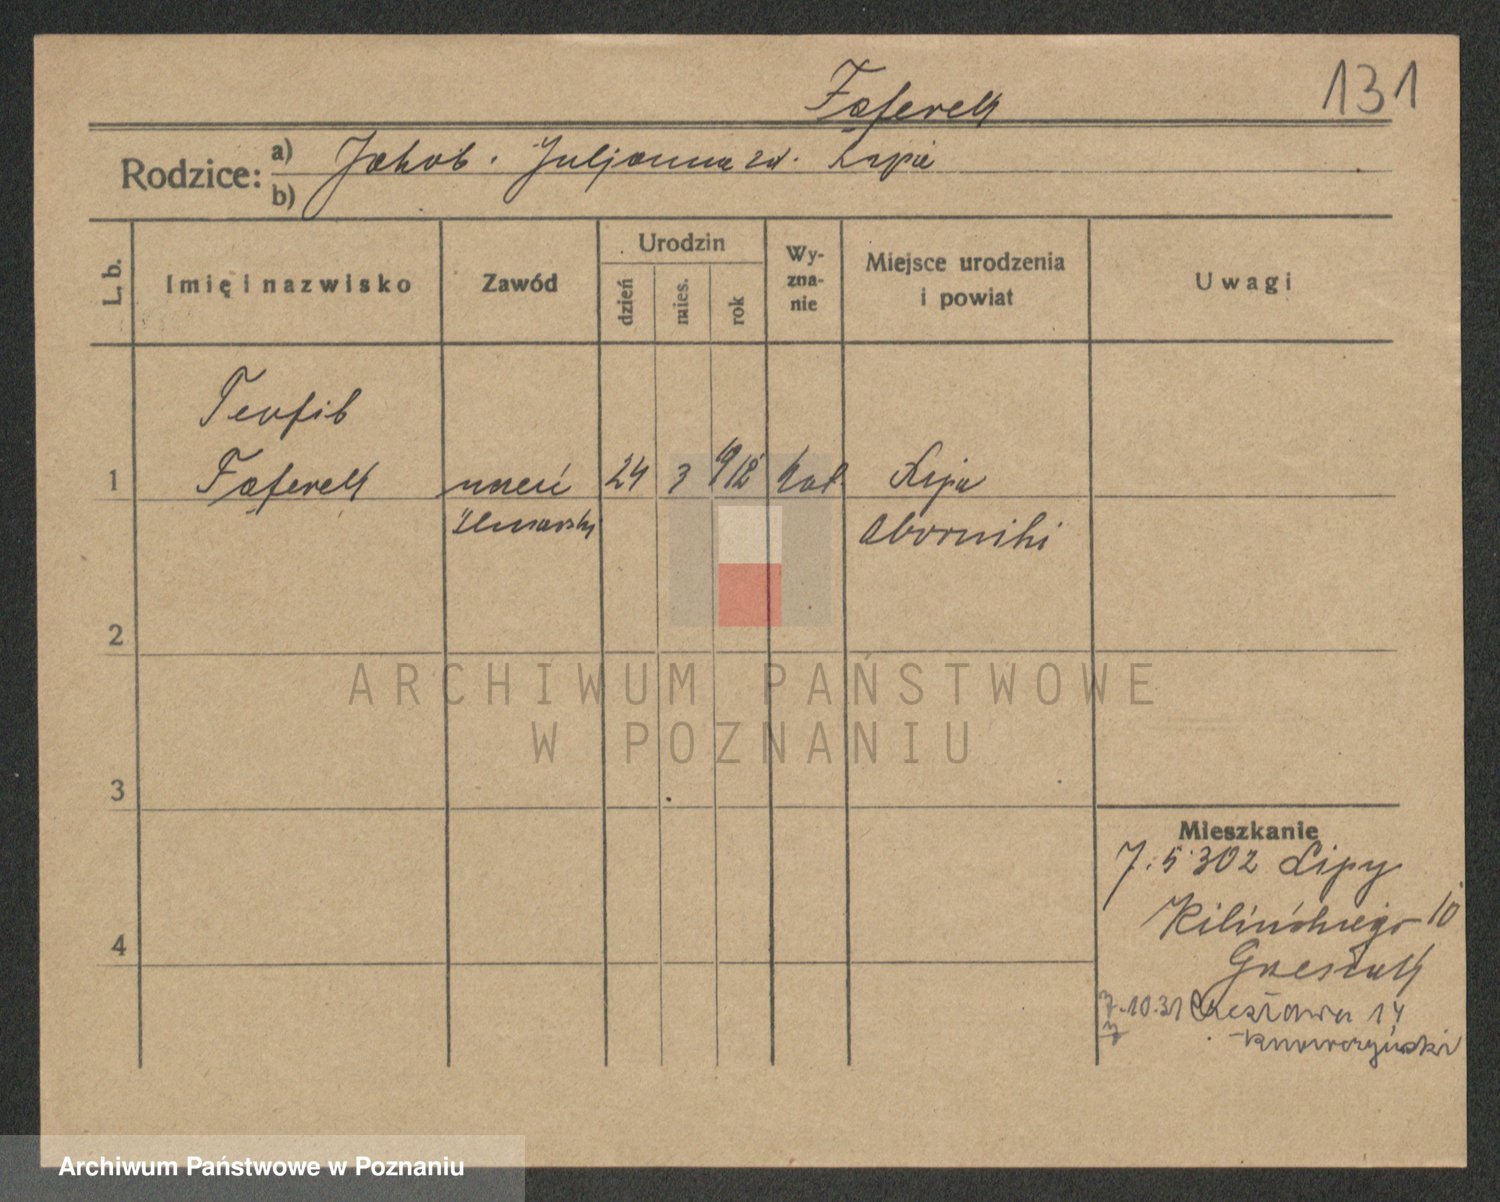 131
Faferek
Rodzice: a) Jakób. Juljanna zd. Łapa
b)
L. b. Imię i nazwisko Zawód Urodzin dzień mies. rok Wyznanie Miejsce urodzenia i powiat Uwagi
Teofil
1 Faferek uczeń 24 3 912 kat Lipa
ślusarski Oborniki
2
3
4
Mieszkanie
7.5 302 Lipy
Kilińskiego 10
7.10.31 Czesława 14
ARCHIWUM PAŃSTWOWE
W POZNANIU
Archiwum Państwowe w Poznaniu